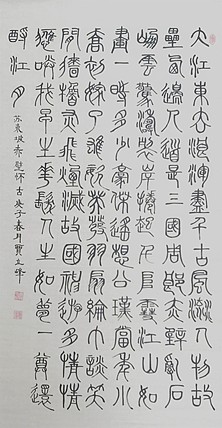 大江東去浪淘盡千古風流人物故
壘西邊人道是三國周郎赤壁亂石
崩雲驚濤裂岸捲起千堆雪江山如
畫一時多少豪傑遙想公瑾當年小
喬初嫁了雄姿英發羽扇綸巾談笑
間檣櫓灰飛煙滅故國神遊多情
應笑我早生華髮人生如夢一尊還
酹江月
蘇東坡赤壁懷古庚子春月賈